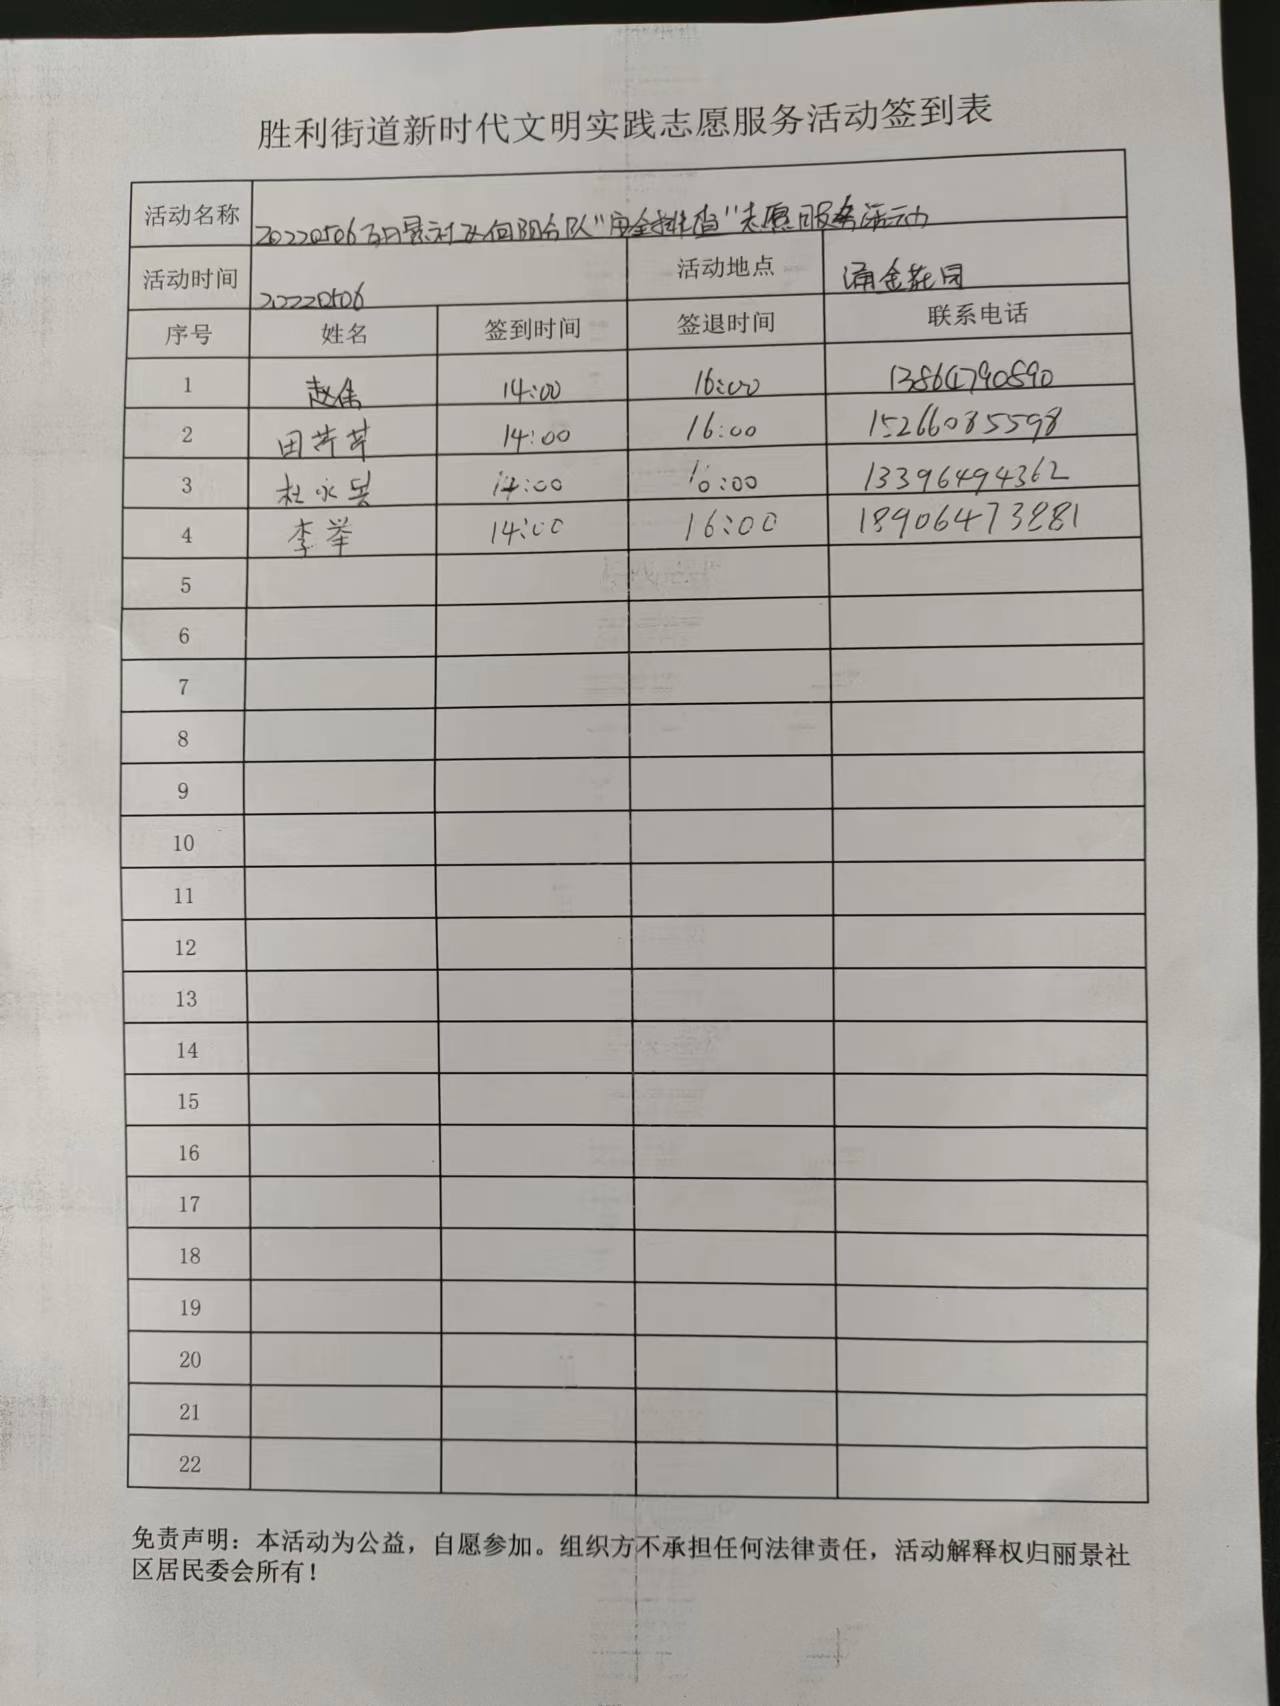 胜利街道新时代文明实践志愿服务活动签到表
活动名称 20220506丽景社区向阳分队“安全排查”志愿服务活动
活动时间 20220506 活动地点 涌金花园
序号 姓名 签到时间 签退时间 联系电话
1 赵倩 14:00 16:00 13864790890
2 田芹芹 14:00 16:00 15266085598
3 杜永 14:00 16:00 13396494362
4 李举 14:00 16:00 18906473281
5
6
7
8
9
10
11
12
13
14
15
16
17
18
19
20
21
22
免责声明：本活动为公益，自愿参加。组织方不承担任何法律责任，活动解释权归丽景社
区居民委会所有！